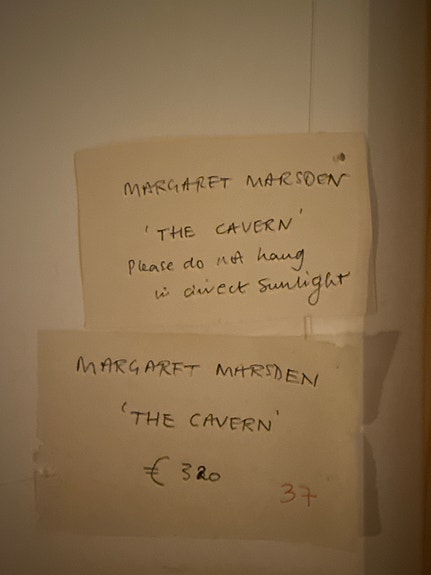 MARGARET MARSDEN
'THE CAVERN'
Please do not hang
in direct sunlight
MARGARET MARSDEN
'THE CAVERN'
€ 320
37